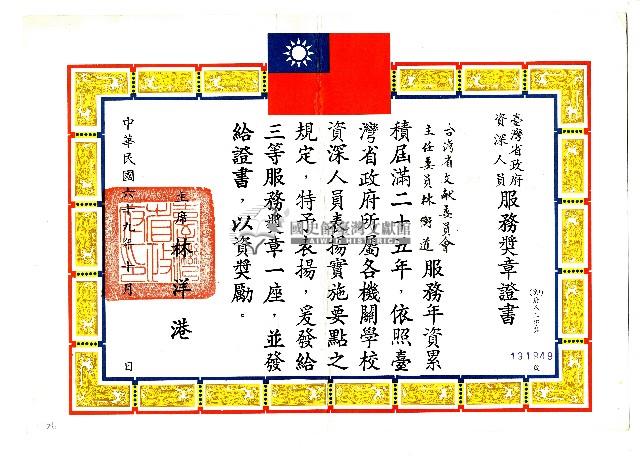 臺灣省政府
資深人員
服務獎章證書
131949
號
台灣省文獻委員會
主任委員林衡道
服務年資累
積屆滿二十五年，依照臺
灣省政府所屬各機關學校
資深人員表揚實施要點之
規定，特予表揚，爰發給
三等服務獎章一座，並發
給證書，以資獎勵。
主席 林洋港
中華民國六十九年十月 日
國史館臺灣文獻館